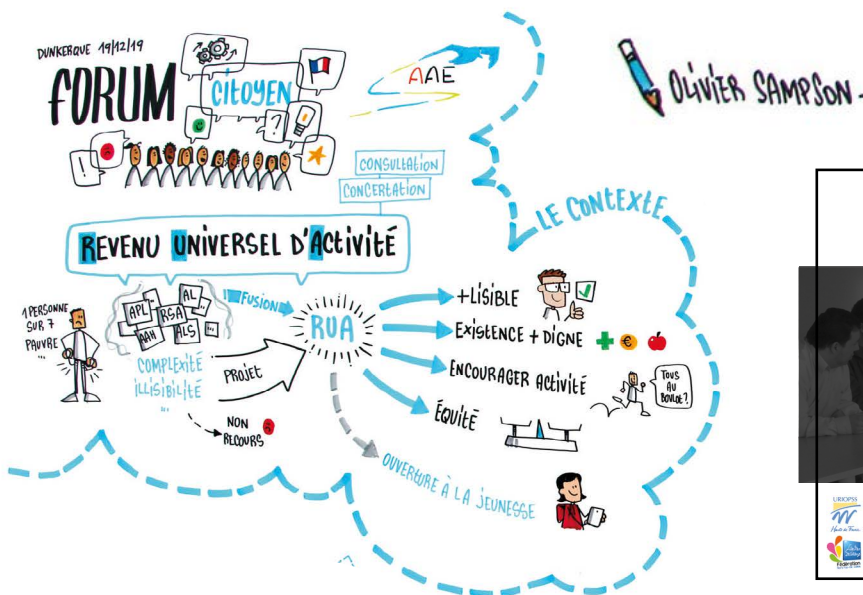 DUNKERQUE 19/12/19
FORUM
CITOYEN
AAE
OLIVIER SAMPSON
CONSULTATION
CONCERTATION
REVENU UNIVERSEL D'ACTIVITÉ
LE CONTEXTE
1 PERSONNE
SUR 7
PAUVRE
...
APL
RSA
AL
AAH
ALS
...
FUSION
COMPLEXITÉ
ILLISIBILITÉ
...
PROJET
NON
RECOURS
RUA
+LISIBLE
EXISTENCE + DIGNE
ENCOURAGER ACTIVITÉ
TOUS
AU
BOULOT?
ÉQUITÉ
OUVERTURE À LA JEUNESSE
URIOPSS
Fédération